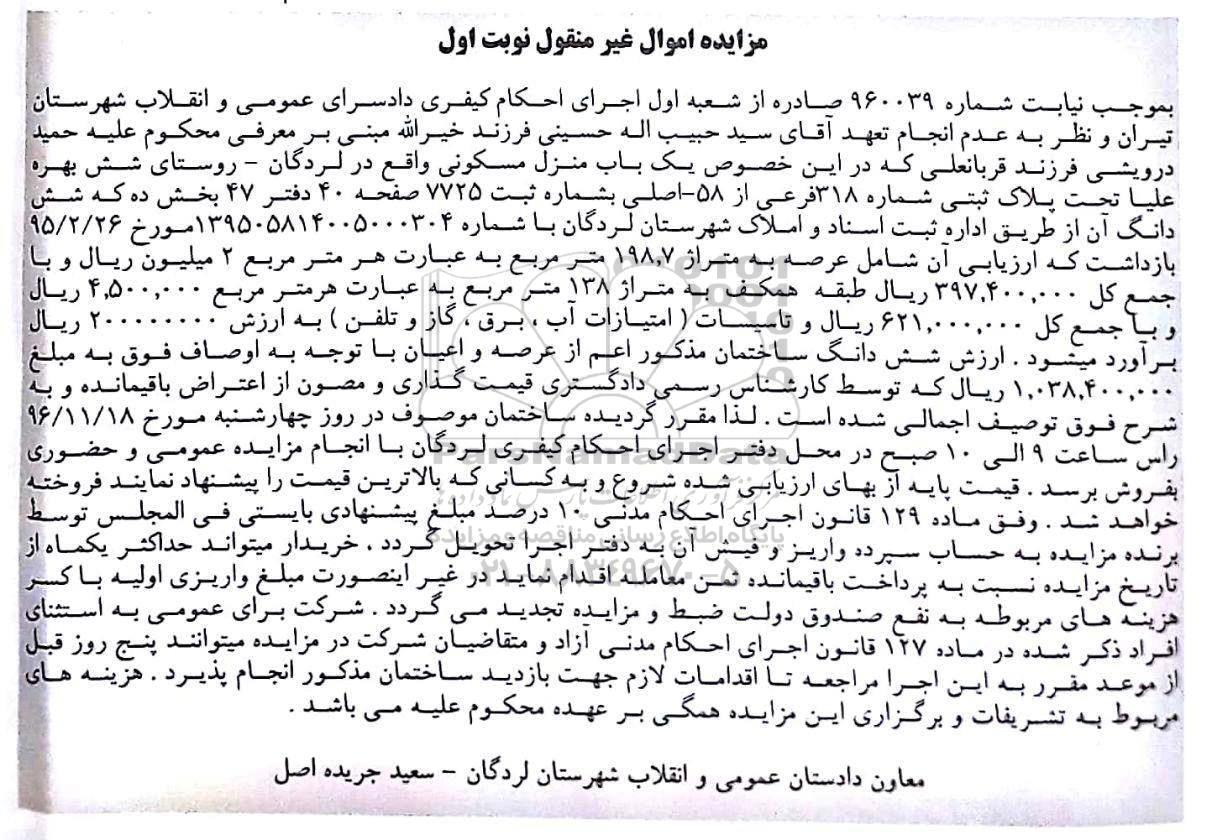 مزایده اموال غیر منقول نوبت اول
بموجب نیابت شماره ۹۶۰۰۳۹ صادره از شعبه اول اجرای احکام کیفری دادسرای عمومی و انقلاب شهرستان
تیران و نظر به عدم انجام تعهد آقای سید حبیب اله حسینی فرزند خیرالله مبنی بر معرفی محکوم علیه حمید
درویشی فرزند قربانعلی که در این خصوص یک باب منزل مسکونی واقع در لردگان – روستای شش بهره
علیا تحت پلاک ثبتی شماره ۳۱۸فرعی از ۵۸-اصلی بشماره ثبت ۷۷۲۵ صفحه ۴۰ دفتر ۴۷ بخش ده که شش
دانگ آن از طریق اداره ثبت اسناد و املاک شهرستان لردگان با شماره ۱۳۹۵۰۵۸۱۴۰۰۵۰۰۰۳۰۴مورخ ۹۵/۲/۲۶
بازداشت که ارزیابی آن شامل عرصه به متراژ ۱۹۸,۷ متر مربع به عبارت هر متر مربع ۲ میلیون ریال و با
جمع کل ۳۹۷,۴۰۰,۰۰۰ ریال طبقه همکف به متراژ ۱۳۸ متر مربع به عبارت هرمتر مربع ۴,۵۰۰,۰۰۰ ریال
و با جمع کل ۶۲۱,۰۰۰,۰۰۰ ریال و تاسیسات ( امتیازات آب ، برق ، گاز و تلفن ) به ارزش ۲۰۰۰۰۰۰۰۰ ریال
بر آورد میشود . ارزش شش دانگ ساختمان مذکور اعم از عرصه و اعیان با توجه به اوصاف فوق به مبلغ
۱,۰۳۸,۴۰۰,۰۰۰ ریال که توسط کارشناس رسمی دادگستری قیمت گذاری و مصون از اعتراض باقیمانده و به
شرح فوق توصیف اجمالی شده است . لذا مقرر گردیده ساختمان موصوف در روز چهارشنبه مورخ ۹۶/۱۱/۱۸
راس ساعت ۹ الی ۱۰ صبح در محل دفتر اجرای احکام کیفری لردگان با انجام مزایده عمومی و حضوری
بفروش برسد . قیمت پایه از بهای ارزیابی شده شروع و به کسانی که بالاترین قیمت را پیشنهاد نمایند فروخته
خواهد شد . وفق ماده ۱۲۹ قانون اجرای احکام مدنی ۱۰ درصد مبلغ پیشنهادی بایستی فی المجلس توسط
برنده مزایده به حساب سپرده واریز و فیش آن به دفتر اجرا تحویل گردد ، خریدار میتواند حداکثر یکماه از
تاریخ مزایده نسبت به پرداخت باقیمانده ثمن معامله اقدام نماید در غیر اینصورت مبلغ واریزی اولیه با کسر
هزینه های مربوطه به نفع صندوق دولت ضبط و مزایده تجدید می گردد . شرکت برای عمومی به استثنای
افراد ذکر شده در ماده ۱۲۷ قانون اجرای احکام مدنی آزاد و متقاضیان شرکت در مزایده میتوانند پنج روز قبل
از موعد مقرر به این اجرا مراجعه تا اقدامات لازم جهت بازدید ساختمان مذکور انجام پذیرد . هزینه های
مربوط به تشریفات و برگزاری این مزایده همگی بر عهده محکوم علیه می باشد .
معاون دادستان عمومی و انقلاب شهرستان لردگان – سعید جریده اصل
ParsNamadData
پایگاه اطلاع رسانی مناقصه و مزایده
۰۲۱-۸۸۳۴۹۶۷۰-۵